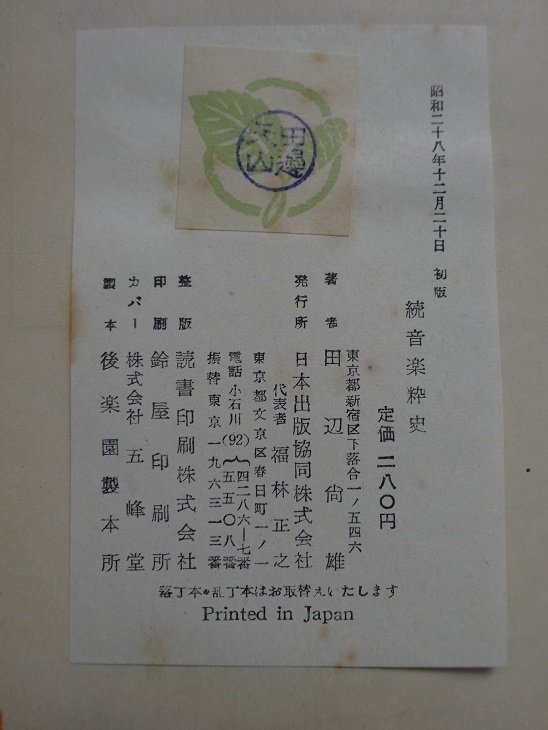 昭和二十八年十二月二十日 初版
続音楽粋史
定価 二八〇円
東京都新宿区下落合一ノ五四六
著者 田辺尚雄
発行所 日本出版協同株式会社
代表者 福林正之
東京都文京区春日町一ノ一
電話 小石川(92){四二八六―七番
五五〇八番
振替東京一九六三一三番
整版 読書印刷株式会社
印刷 鈴屋印刷所
カバー 株式会社 五峰堂
製本 後楽園製本所
落丁本・乱丁本はお取替えいたします
Printed in Japan
田邊